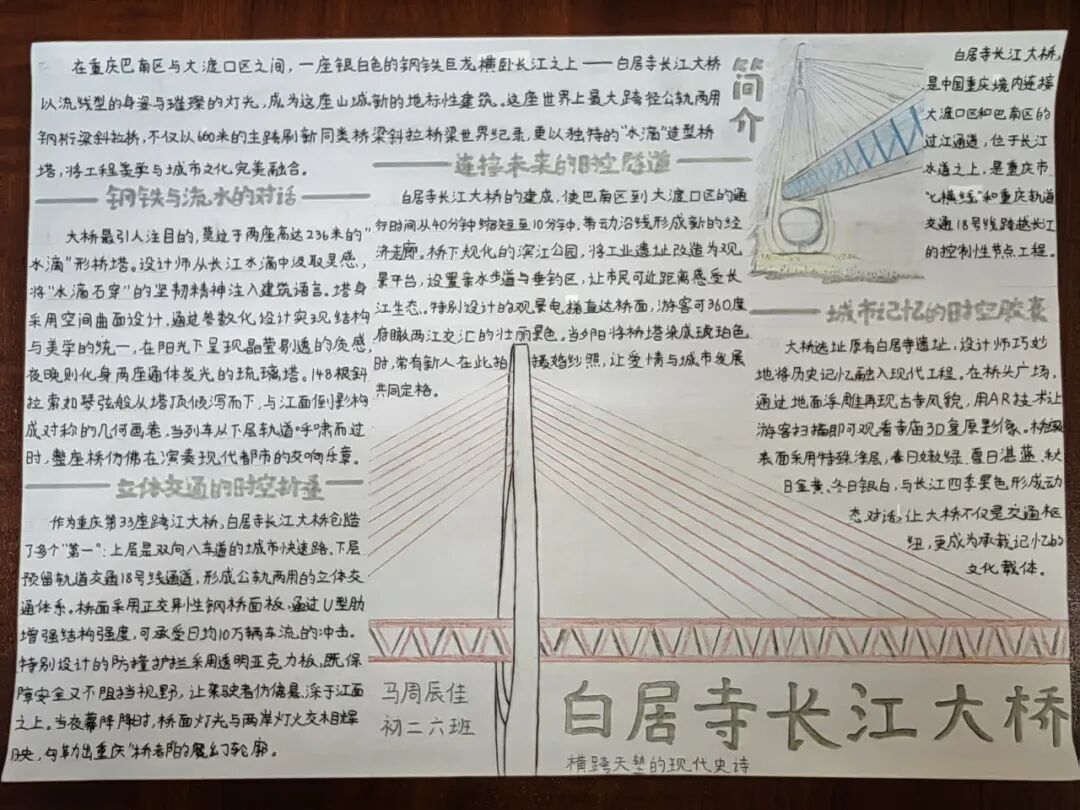 在重庆巴南区与大渡口区之间，一座银白色的钢铁巨龙横卧长江之上——白居寺长江大桥
以流线型的身姿与璀璨的灯光，成为这座山城新的地标性建筑。这座世界上最大跨径公轨两用
钢桁梁斜拉桥，不仅以660米的主跨刷新同类桥梁斜拉桥梁世界纪录，更以独特的“水滴”造型桥
塔，将工程美学与城市文化完美融合。
钢铁与流水的对话
大桥最引人注目的，莫过于两座高达236米的“
水滴”形桥塔。设计师从长江水滴中汲取灵感，
将“水滴石穿”的坚韧精神注入建筑语言。塔身
采用空间曲面设计，通过参数化设计实现结构
与美学的统一，在阳光下呈现晶莹剔透的质感，
夜晚则化身两座通体发光的琉璃塔。148根斜
拉索如琴弦般从塔顶倾泻而下，与江面倒影构
成对称的几何画卷，当列车从下层轨道呼啸而过
时，整座桥仿佛在演奏现代都市的交响乐章。
立体交通的时空折叠
作为重庆第33座跨江大桥，白居寺长江大桥创造
了多个“第一”：上层是双向八车道的城市快速路，下层
预留轨道交通18号线通道，形成公轨两用的立体交
通体系。桥面采用正交异性钢桥面板，通过U型肋
增强结构强度，可承受日均10万辆车流的冲击。
特别设计的防撞护栏采用透明亚克力板，既保
障安全又不阻挡视野，让驾驶者仿佛悬浮于江面
之上。当夜幕降降时，桥面灯光与两岸灯火交相辉
映，勾勒出重庆“桥都”的魔幻轮廓。
连接未来的时空隧道
白居寺长江大桥的建成，使巴南区到大渡口区的通
行时间从40分钟缩短至10分钟，带动沿线形成新的经
济走廊。桥下规化的滨江公园，将工业遗址改造为观
景平台，设置亲水步道与垂钓区，让市民可近距离感受长
江生态。特别设计的观景电梯直达桥面，游客可360度
俯瞰两江交汇的壮丽景色。当夕阳将桥塔染成琥珀色
时，常有新人在此拍摄婚纱照，让爱情与城市发展
共同定格。
简介
白居寺长江大桥，
是中国重庆境内连接
大渡口区和巴南区的
过江通道，位于长江
水道之上，是重庆市
“七横线”和重庆轨道
交通18号线跨越长江
的控制性节点工程。
城市记忆的时空胶囊
大桥选址原有白居寺遗址，设计师巧妙
地将历史记忆融入现代工程。在桥头广场，
通过地面浮雕再现古寺风貌，用AR技术让
游客扫描即可观看寺庙3D复原影像。桥墩
表面采用特殊涂层，春日嫩绿、夏日湛蓝、秋
日金黄、冬日银白，与长江四季景色形成动
态对话，让大桥不仅是交通枢
纽，更成为承载记忆的
文化载体。
马周辰佳
初二六班
白居寺长江大桥
横跨天堑的现代史诗